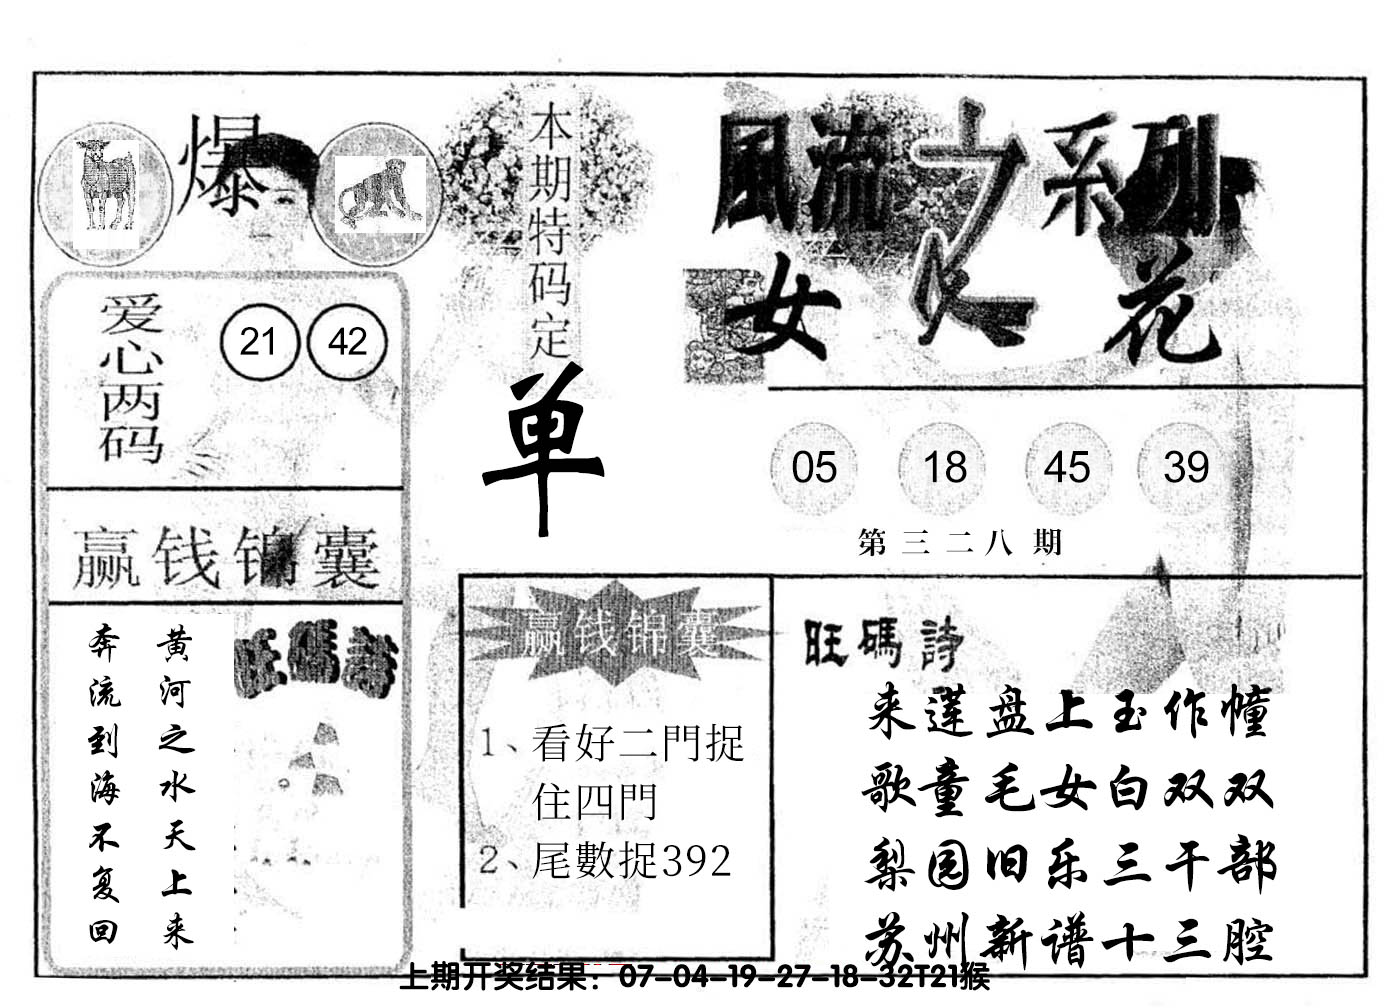 爆
本期特码定
单
風流之系列
女人花
爱心两码
21 42
05 18 45 39
第三二八期
赢钱锦囊
黄河之水天上来
奔流到海不复回
旺碼詩
赢钱锦囊
1、看好二門捉
住四門
2、尾數捉392
旺碼詩
来莲盘上玉作幢
歌童毛女白双双
梨园旧乐三千部
苏州新谱十三腔
上期开奖结果：07-04-19-27-18-32T21猴